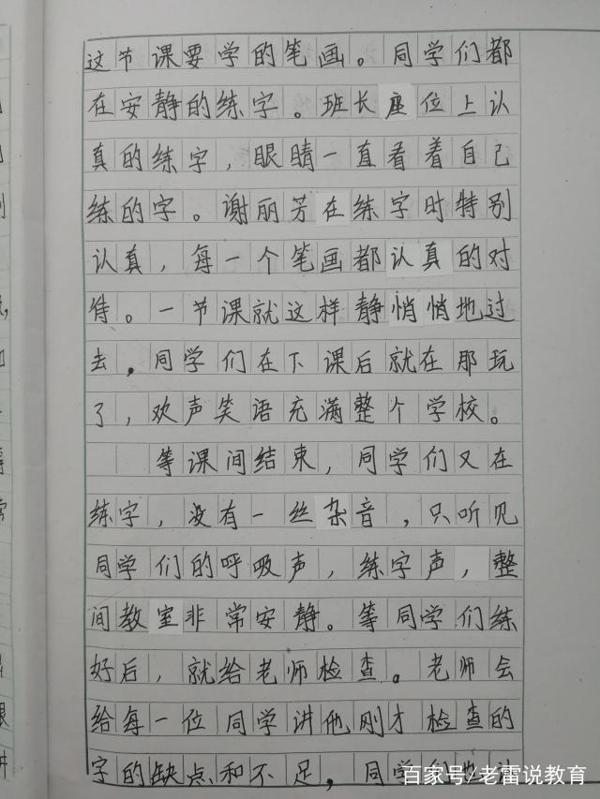 这节课要学的笔画。同学们都
在安静的练字。班长座位上认
真的练字，眼睛一直看着自己
练的字。谢丽芳在练字时特别
认真，每一个笔画都认真的对
待。一节课就这样静悄悄地过
去，同学们在下课后就在那玩
了，欢声笑语充满整个学校。
等课间结束，同学们又在
练字，没有一丝杂音，只听见
同学们的呼吸声，练字声，整
间教室非常安静。等同学们练
好后，就给老师检查。老师会
给每一位同学讲他刚才检查的
字的缺点和不足，同学们
百家号/老雷说教育